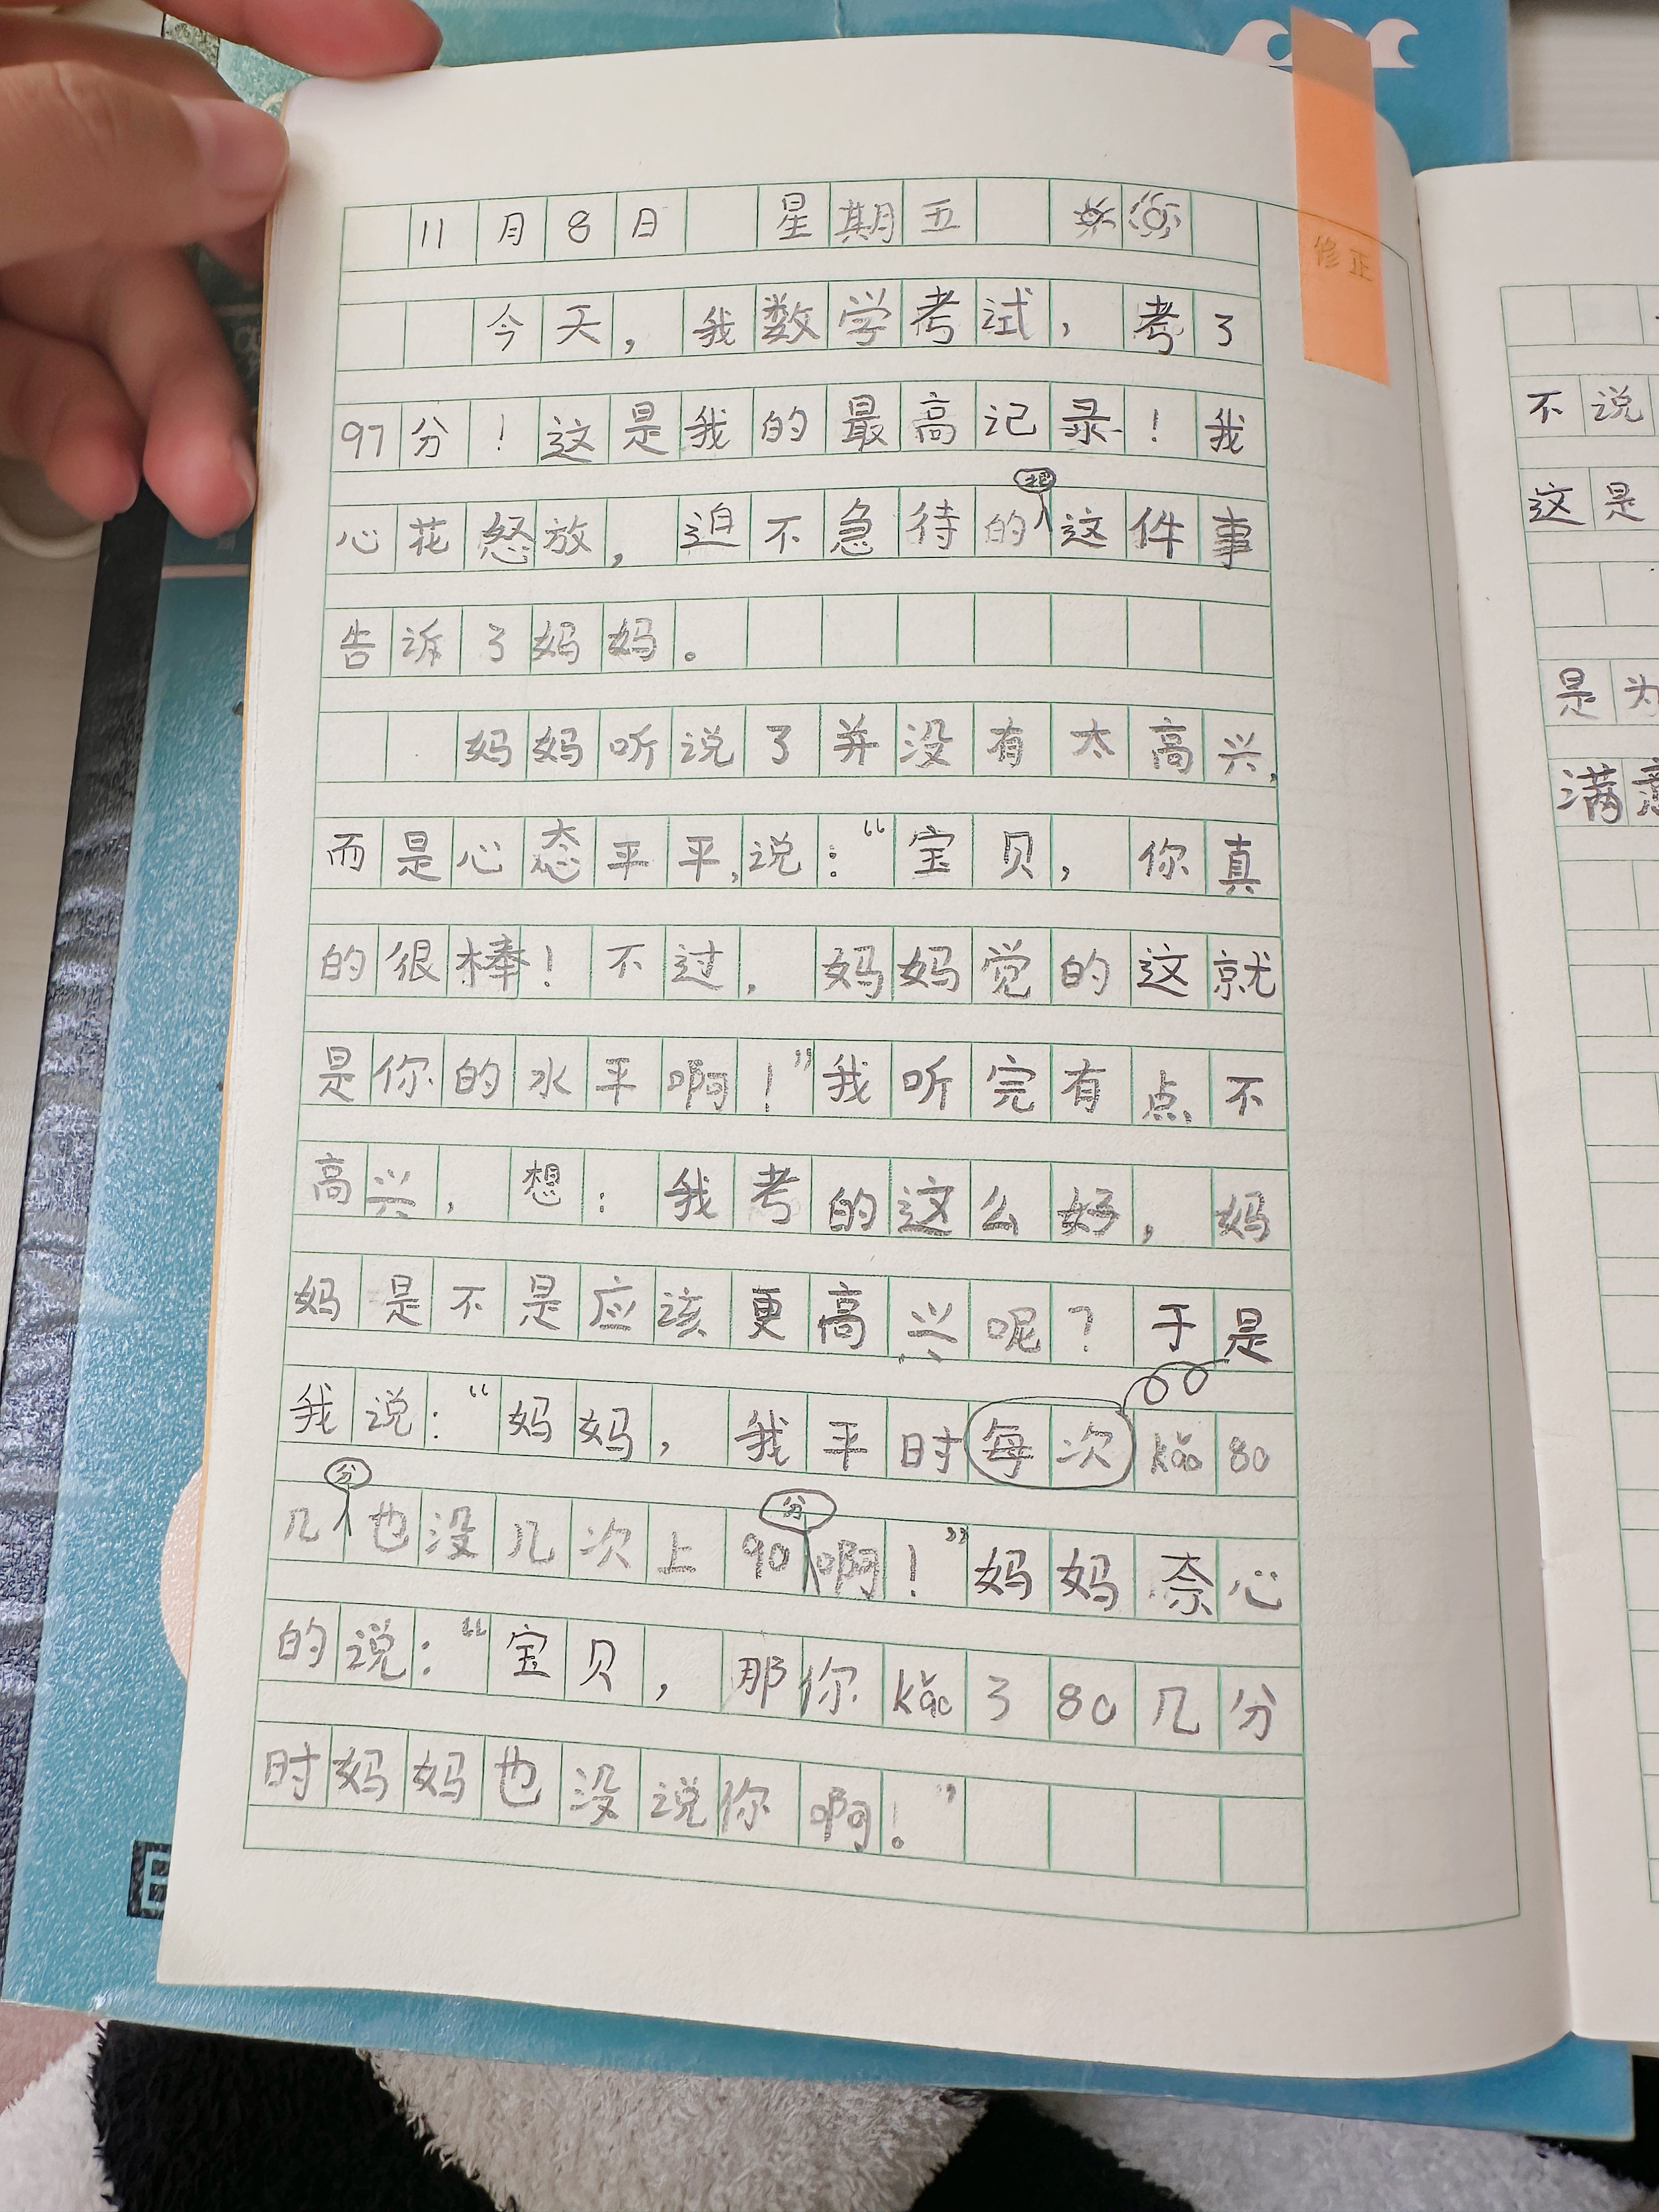 11月8日 星期五
修正
今天，我数学考试，考了
97分！这是我的最高记录！我
心花怒放，迫不急待的把这件事
告诉了妈妈。
妈妈听说了并没有太高兴，
而是心态平平，说：“宝贝，你真
的很棒！不过，妈妈觉的这就
是你的水平啊！”我听完有点不
高兴，想：我考的这么好，妈
妈是不是应该更高兴呢？于是
我说：“妈妈，我平时每次kǎo80
几分也没几次上90分啊！”妈妈奈心
的说：“宝贝，那你kǎo了80几分
时妈妈也没说你啊！”
不说
这是
是为
满意